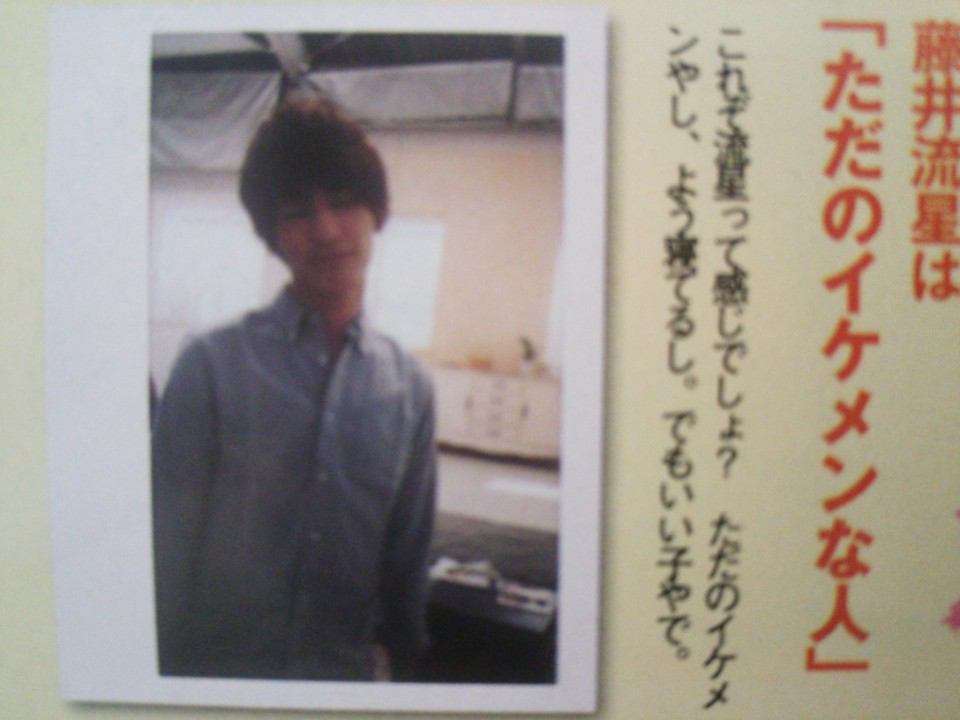 藤井流星は
「ただのイケメンな人」
これぞ流星って感じでしょ？　ただのイケメ
ンやし、よう寝てるし。でもいい子やで。